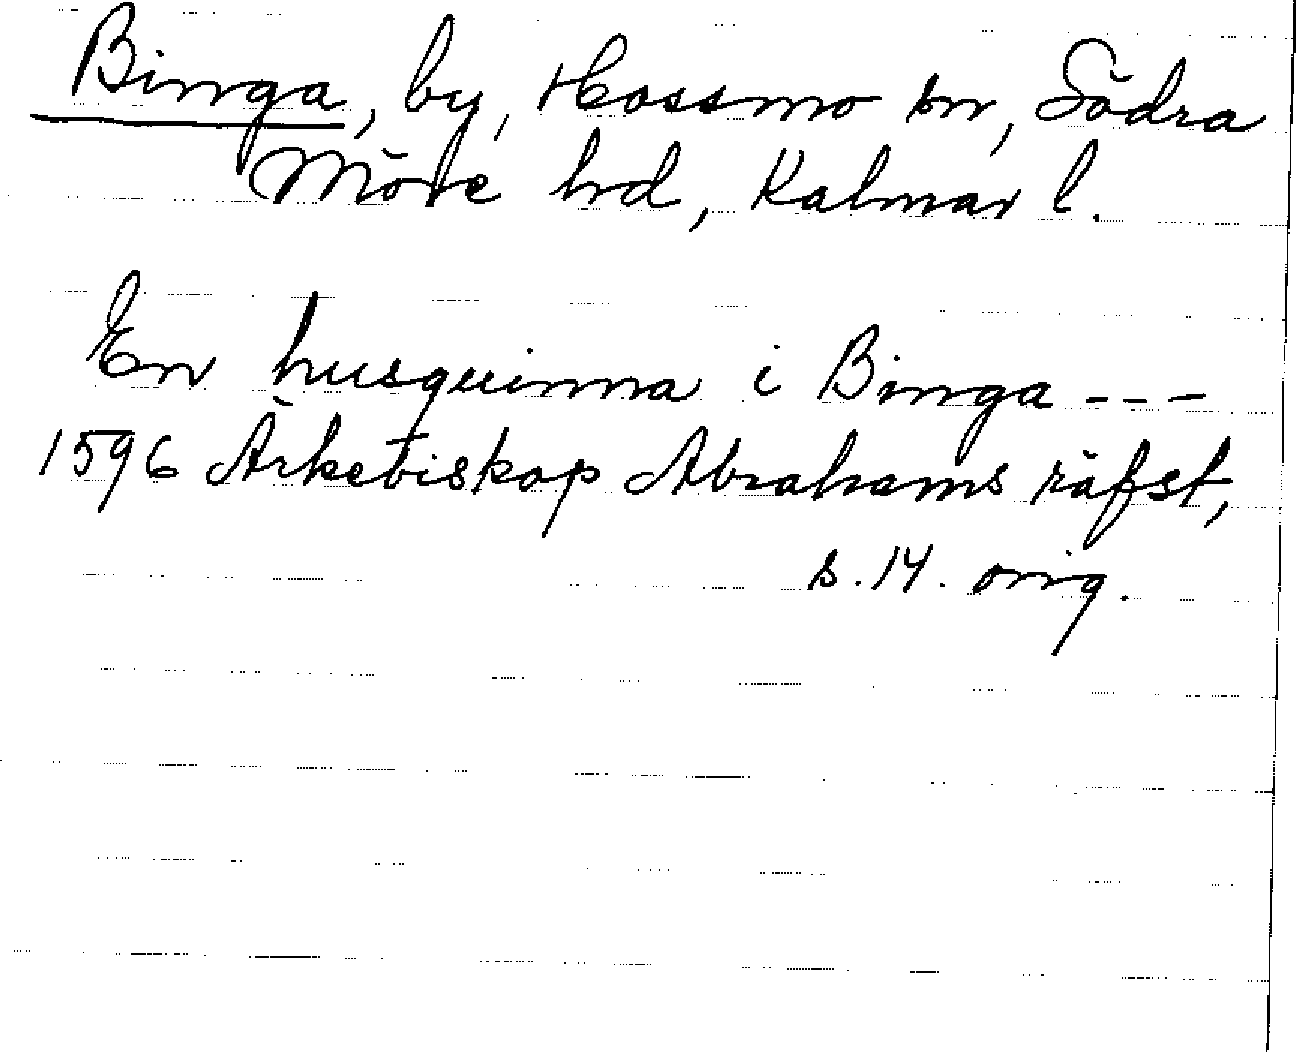 Binga, by, Hossmo sn, Södra
Möre hrd, Kalmar l.
En husquinna i Binga ---
1596 Ärkebiskop Abrahams räfst,
s. 14. orig.